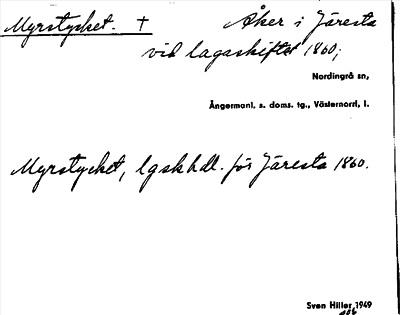 Myrstycket. † Åker i Järesta
vid lagaskiftet 1860;
Nordingrå sn,
Ångermanl. s. doms. tg., Västernorrl. l.
Myrstycket, lgskhdl. för Järesta 1860.
Sven Hiller 1949